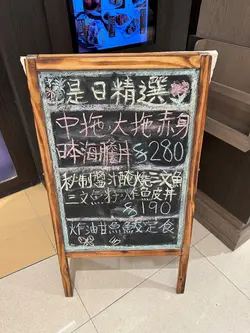 是日精選
中拖,大拖赤身
日本海膽丼 $280
秘制醬汁醃燒三文魚
三文魚籽,炸魚皮丼
$190
炸油甘魚鮫定食
$